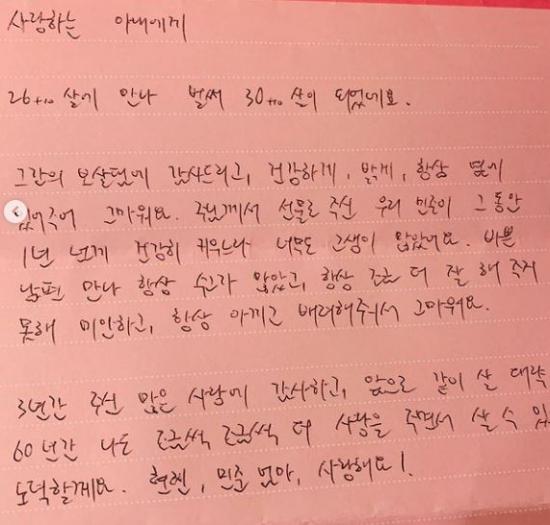 사랑하는 아내에게
26 살에 만나 벌써 30 살이 되었네요.
그간의 보살핌에 감사드리고, 건강하게, 밝게, 항상 옆에
있어주어 고마워요. 주님께서 선물로 주신 우리 민준이 그동안
1년 넘게 건강히 키우느라 너무도 고생이 많았어요. 바쁜
남편 만나 항상 수고가 많았고, 항상 조금 더 잘 해 주지
못해 미안하고, 항상 아끼고 배려해줘서 고마워요.
3년간 주신 많은 사랑에 감사하고, 앞으로 같이 살 대략
60년간 나도 조금씩 조금씩 더 사랑을 주면서 살 수 있
도록할게요. 민준 엄마, 사랑해요!